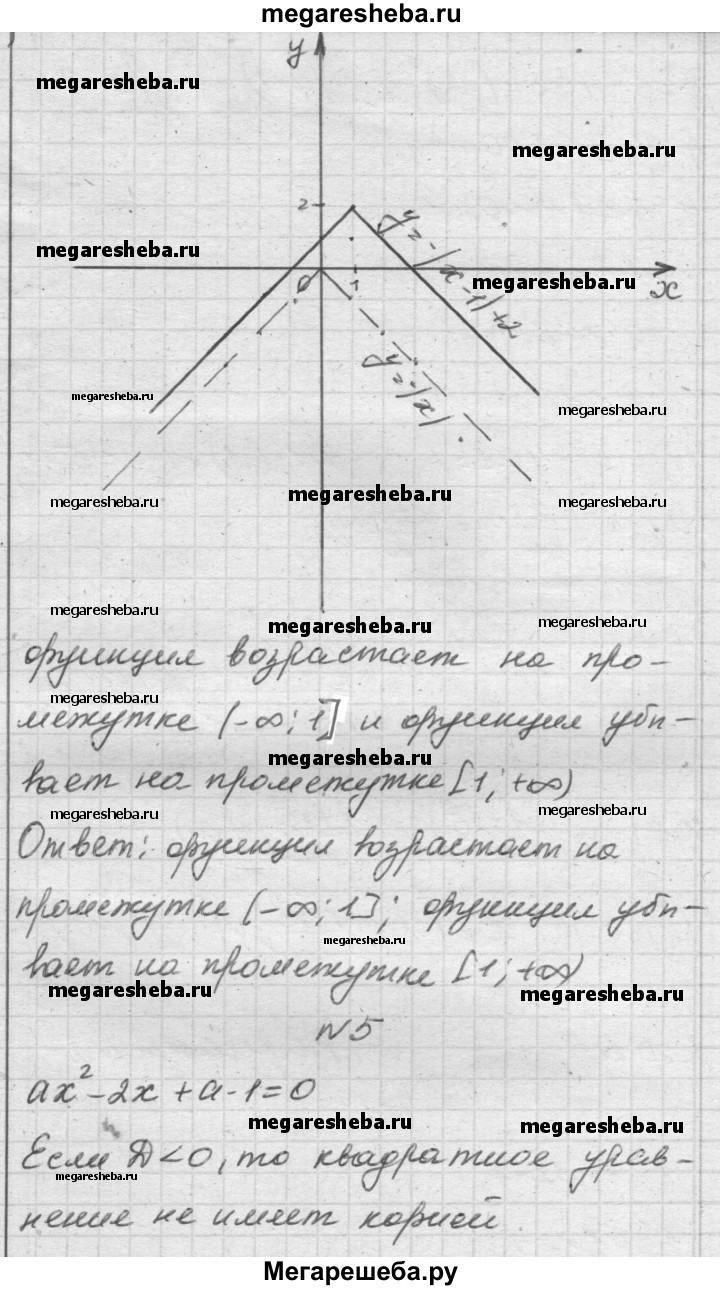 megaresheba.ru
y
megaresheba.ru
megaresheba.ru
2
y=-|x-1|+2
megaresheba.ru
megaresheba.ru
0 1 x
y=-|x|
megaresheba.ru
megaresheba.ru
megaresheba.ru
megaresheba.ru
megaresheba.ru
megaresheba.ru
megaresheba.ru
megaresheba.ru
функция возрастает на про-
megaresheba.ru
межутке (-∞; 1] и функция убы-
megaresheba.ru
вает на промежутке [1; +∞)
megaresheba.ru
megaresheba.ru
Ответ: функция возрастает на
промежутке (-∞; 1]; функция убы-
megaresheba.ru
вает на промежутке [1; +∞)
megaresheba.ru
megaresheba.ru
N5
ax²-2x+a-1=0
megaresheba.ru
megaresheba.ru
Если D<0, то квадратное урав-
megaresheba.ru
нение не имеет корней
Мегарешеба.ру